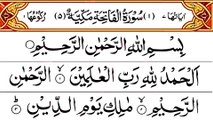 سُوْرَةُ الْفَاتِحَةِ مَكِّيَّةٌ (٥)
بِسْمِ اللهِ الرَّحْمٰنِ الرَّحِيْمِ
اَلْحَمْدُ لِلّٰهِ رَبِّ الْعٰلَمِيْنَ ۙ الرَّحْمٰنِ
الرَّحِيْمِ ۙ مٰلِكِ يَوْمِ الدِّيْنِ ؕ